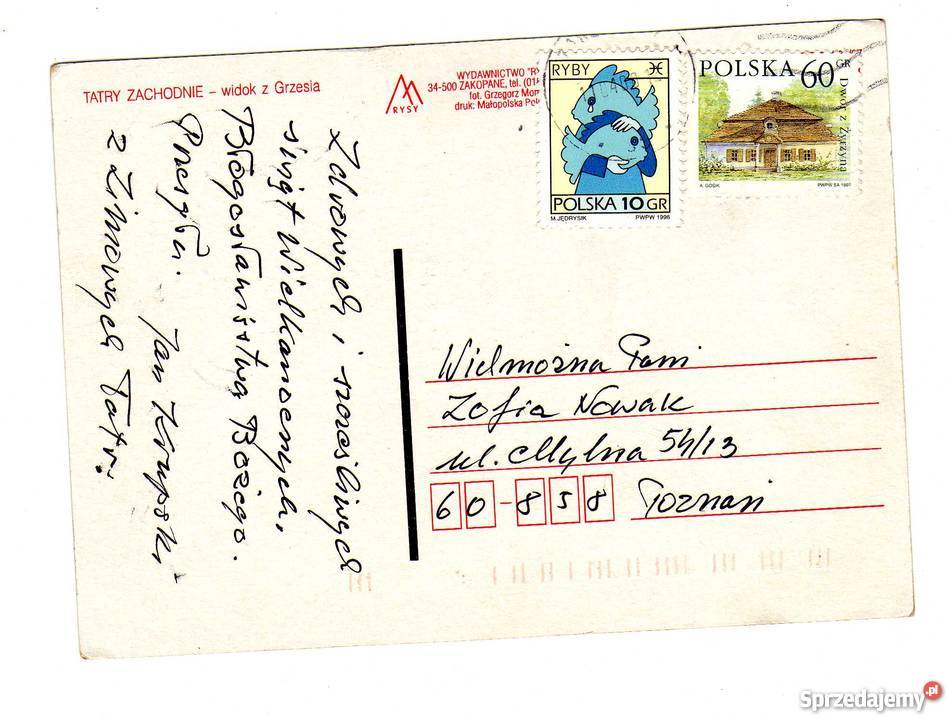 TATRY ZACHODNIE – widok z Grzesia
RYSY
WYDAWNICTWO "RY
34-500 ZAKOPANE, tel. (01
fot. Grzegorz
druk: Małopolska
RYBY
POLSKA 10 GR
M. JĘDRYSIK PWPW 1996
POLSKA 60 GR
Dwór z Żyrzyna
A. GOSIK PWPW SA 1997
Zdrowych i szczęśliwych
świąt Wielkanocnych,
Błogosławieństwa Bożego.
Jan Krupski
z Zimowych Tatr.
Wielmożna Pani
Zofia Nowak
ul. Mylna 54/13
60-858 Poznań
Sprzedajemy.pl